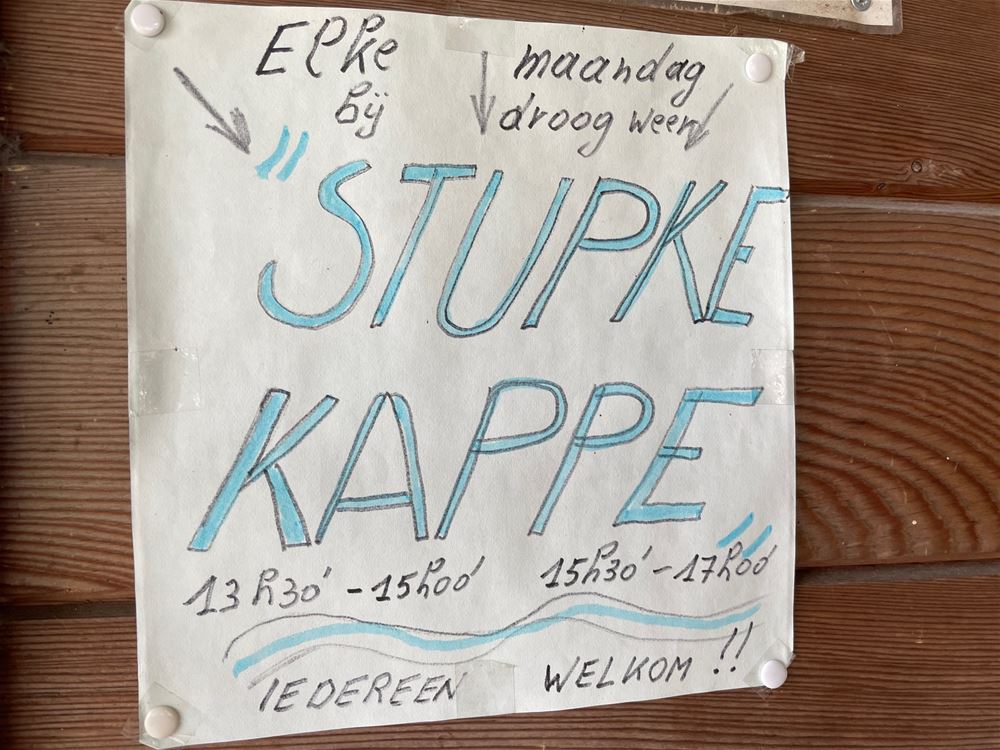 Elke maandag
bij droog weer
"STUPKE
KAPPE"
13h30' - 15h00' 15h30' - 17h00'
IEDEREEN WELKOM !!